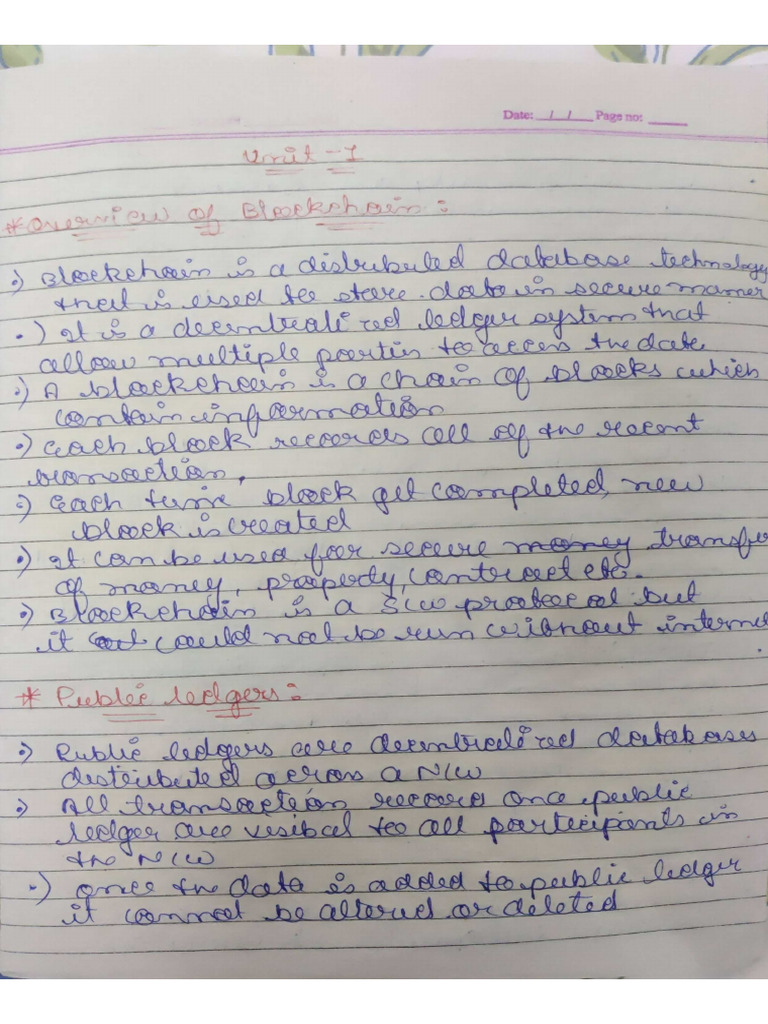 Date: / / Page no:
Unit - 1
* Overview of Blockchain :
•) Blockchain is a distributed database technology
that is used to store data in secure manner
•) It is a decentralized ledger system that
allow multiple parties to access the data
•) A blockchain is a chain of blocks which
contain information
•) Each block records all of the recent
transaction.
•) Each time block get completed, new
block is created
•) It can be used for secure money transfer
of money, property, contract etc.
•) Blockchain is a S/W protocol but
it could not be run without internet
* Public ledgers :
•) Public ledgers are decentralized databases
distributed across a N/W
•) All transaction records once public
ledger are vesibal to all participants in
the N/W
•) once the data is added to public ledger
it cannot be altered or deleted